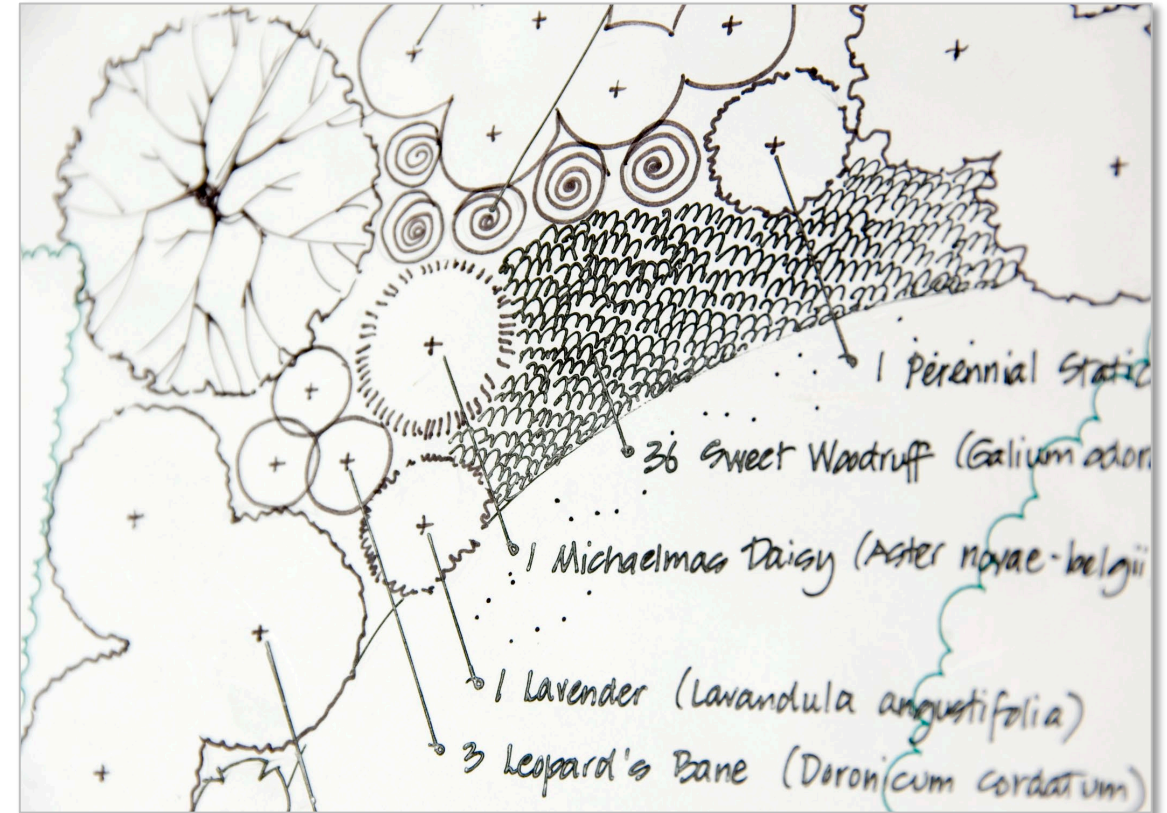 1 Perennial Static
36 Sweet Woodruff (Galium odor
1 Michaelmas Daisy (Aster novae-belgii
1 Lavender (Lavandula angustifolia)
3 Leopard's Bane (Doronicum cordatum)